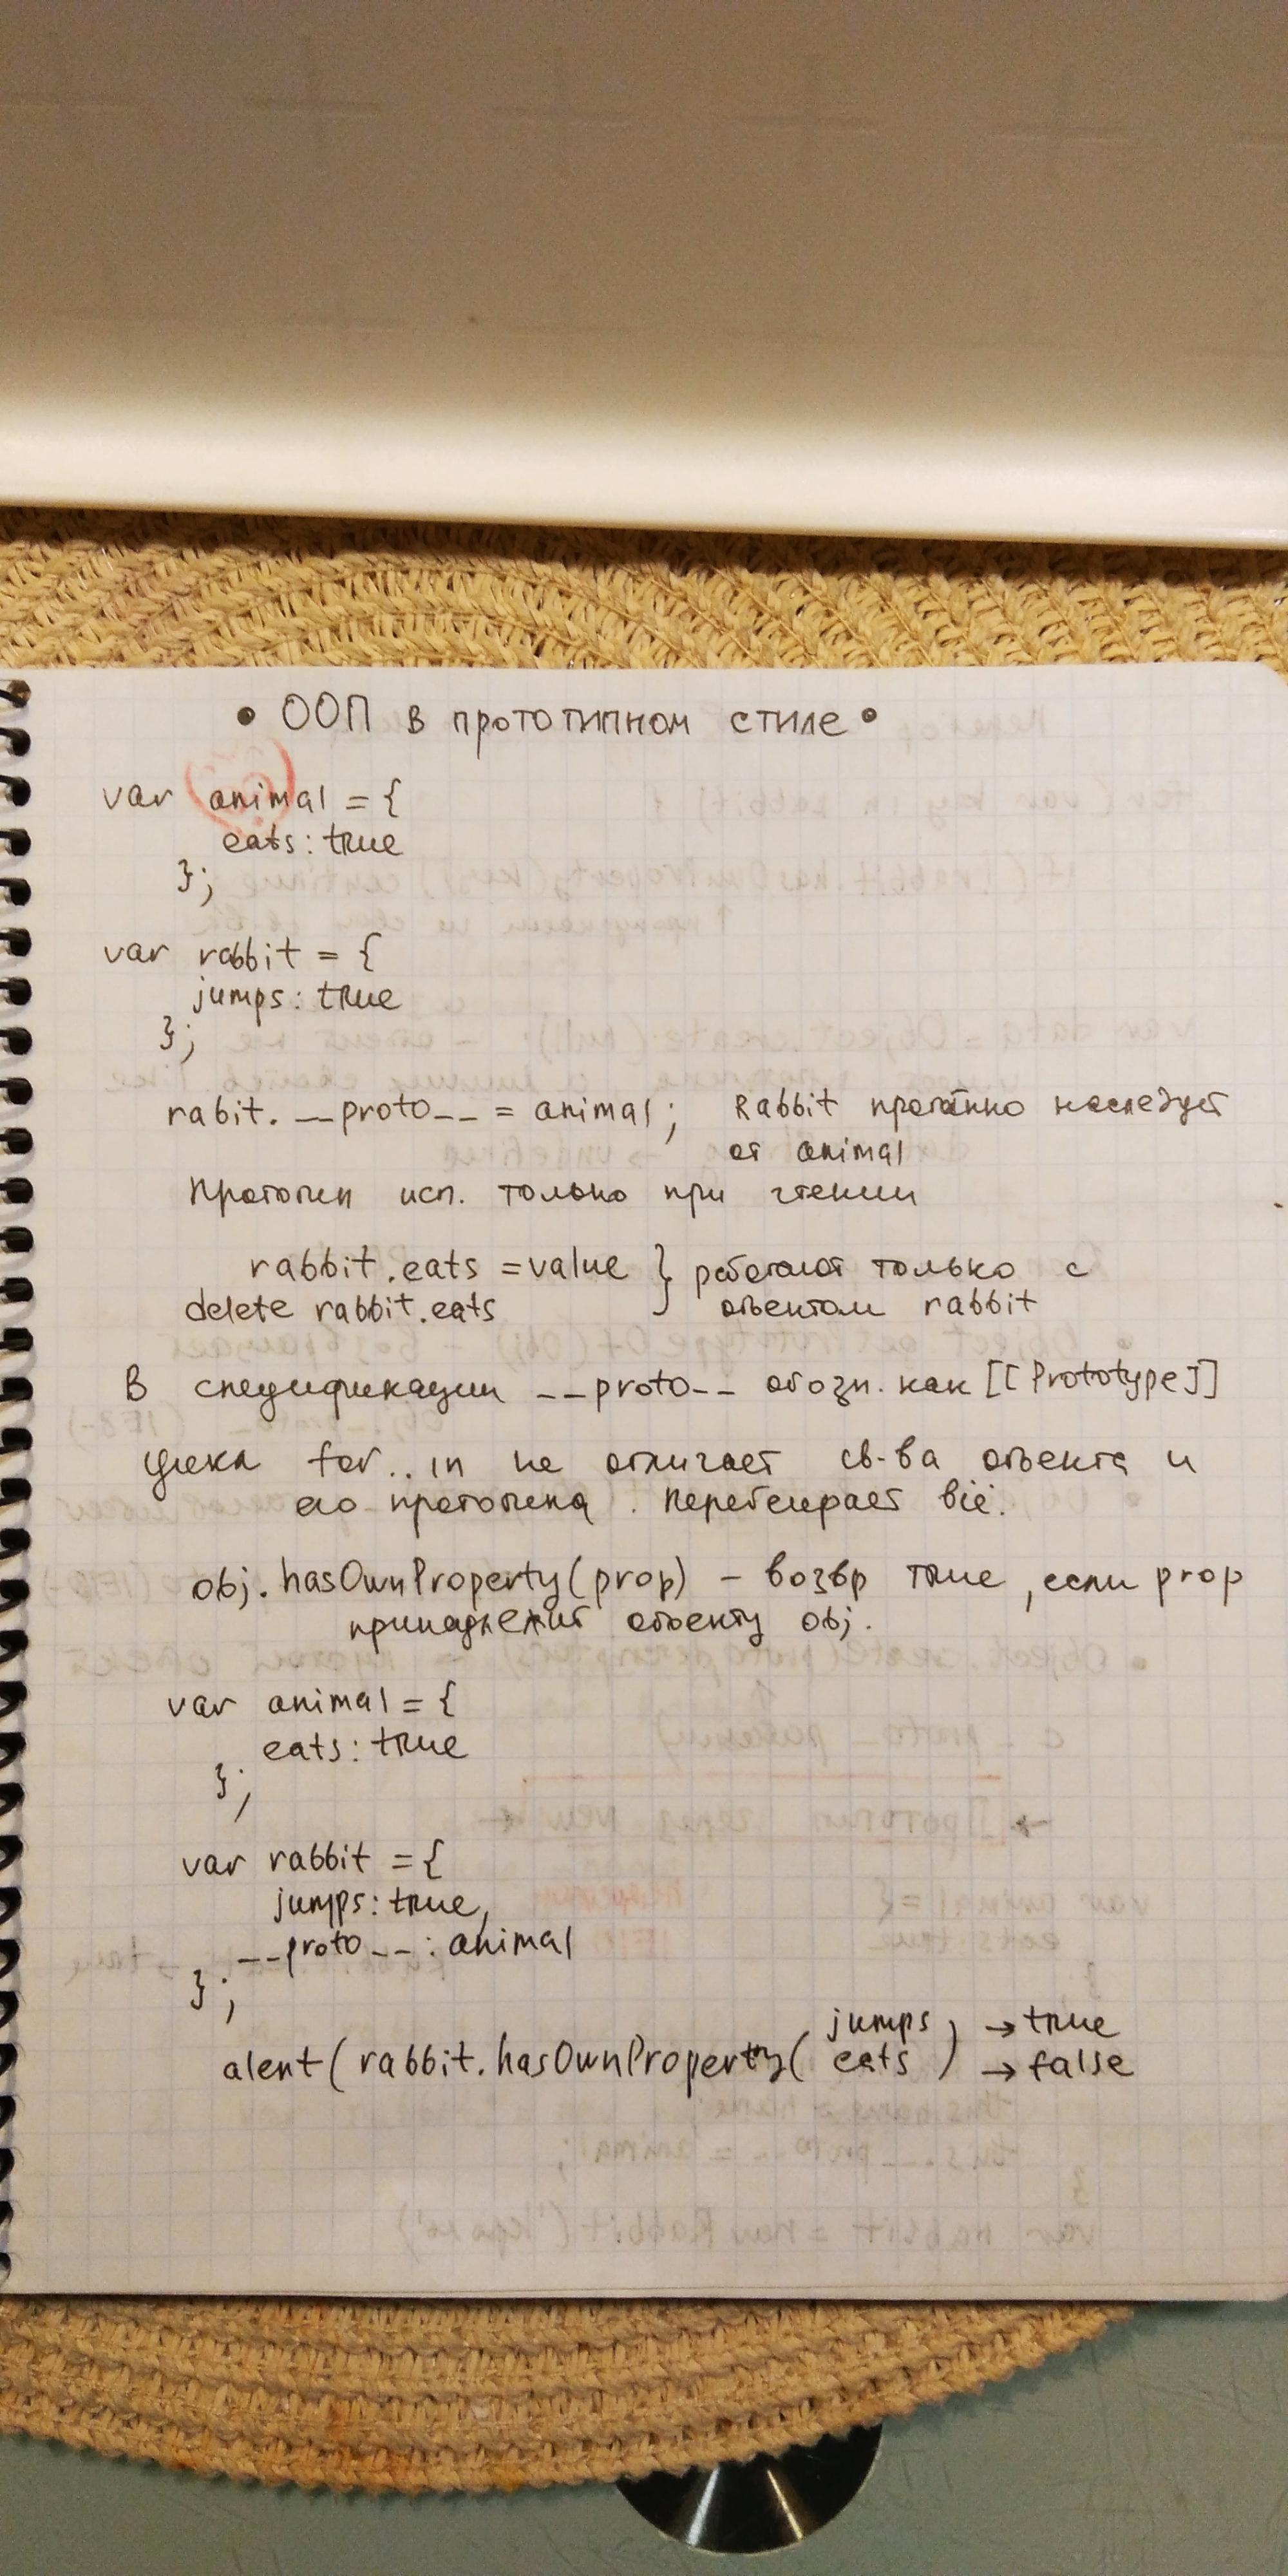 • ООП в прототипном стиле •
var animal = {
eats: true
};
var rabbit = {
jumps: true
};
rabit. __proto__ = animal; Rabbit прототипно наследует
от animal
Прототип исп. только при чтении
rabbit.eats = value } работают только с
delete rabbit.eats объектом rabbit
В спецификации __proto__ обозн. как [[Prototype]]
Цикл for..in не отличает св-ва объекта и
его прототипа. Перебирает всё.
obj.hasOwnProperty(prop) - возвр true, если prop
принадлежит объекту obj.
var animal = {
eats: true
};
var rabbit = {
jumps: true,
__proto__: animal
};
jumps ) → true
alert(rabbit.hasOwnProperty( eats → false